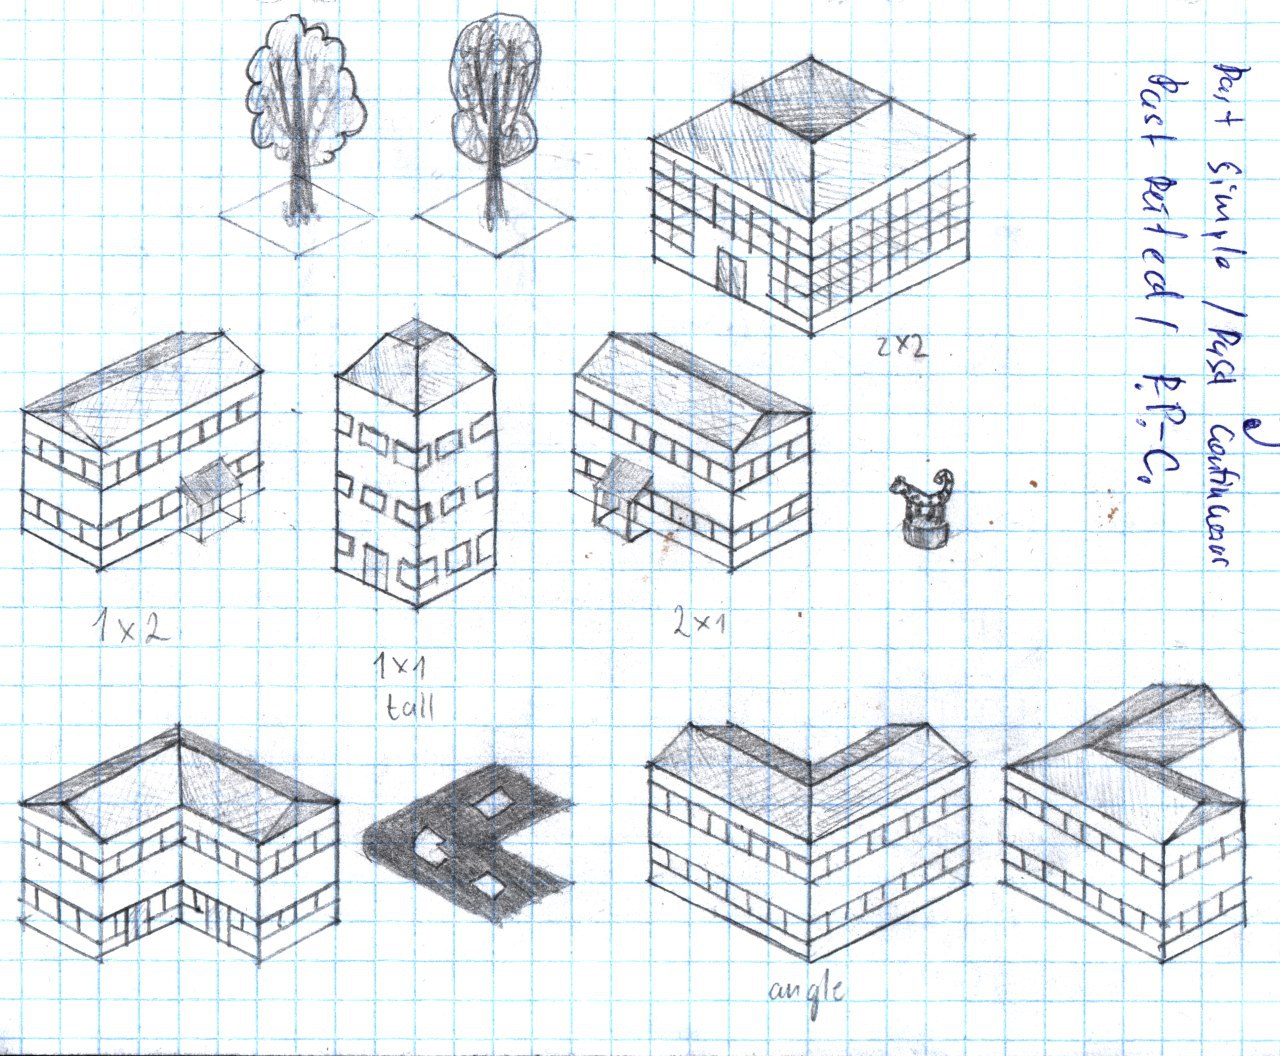 Past Simple / Past Continuous
Past Perfect / P.P.-C.
2x2
1x2
1x1
tall
2x1
angle